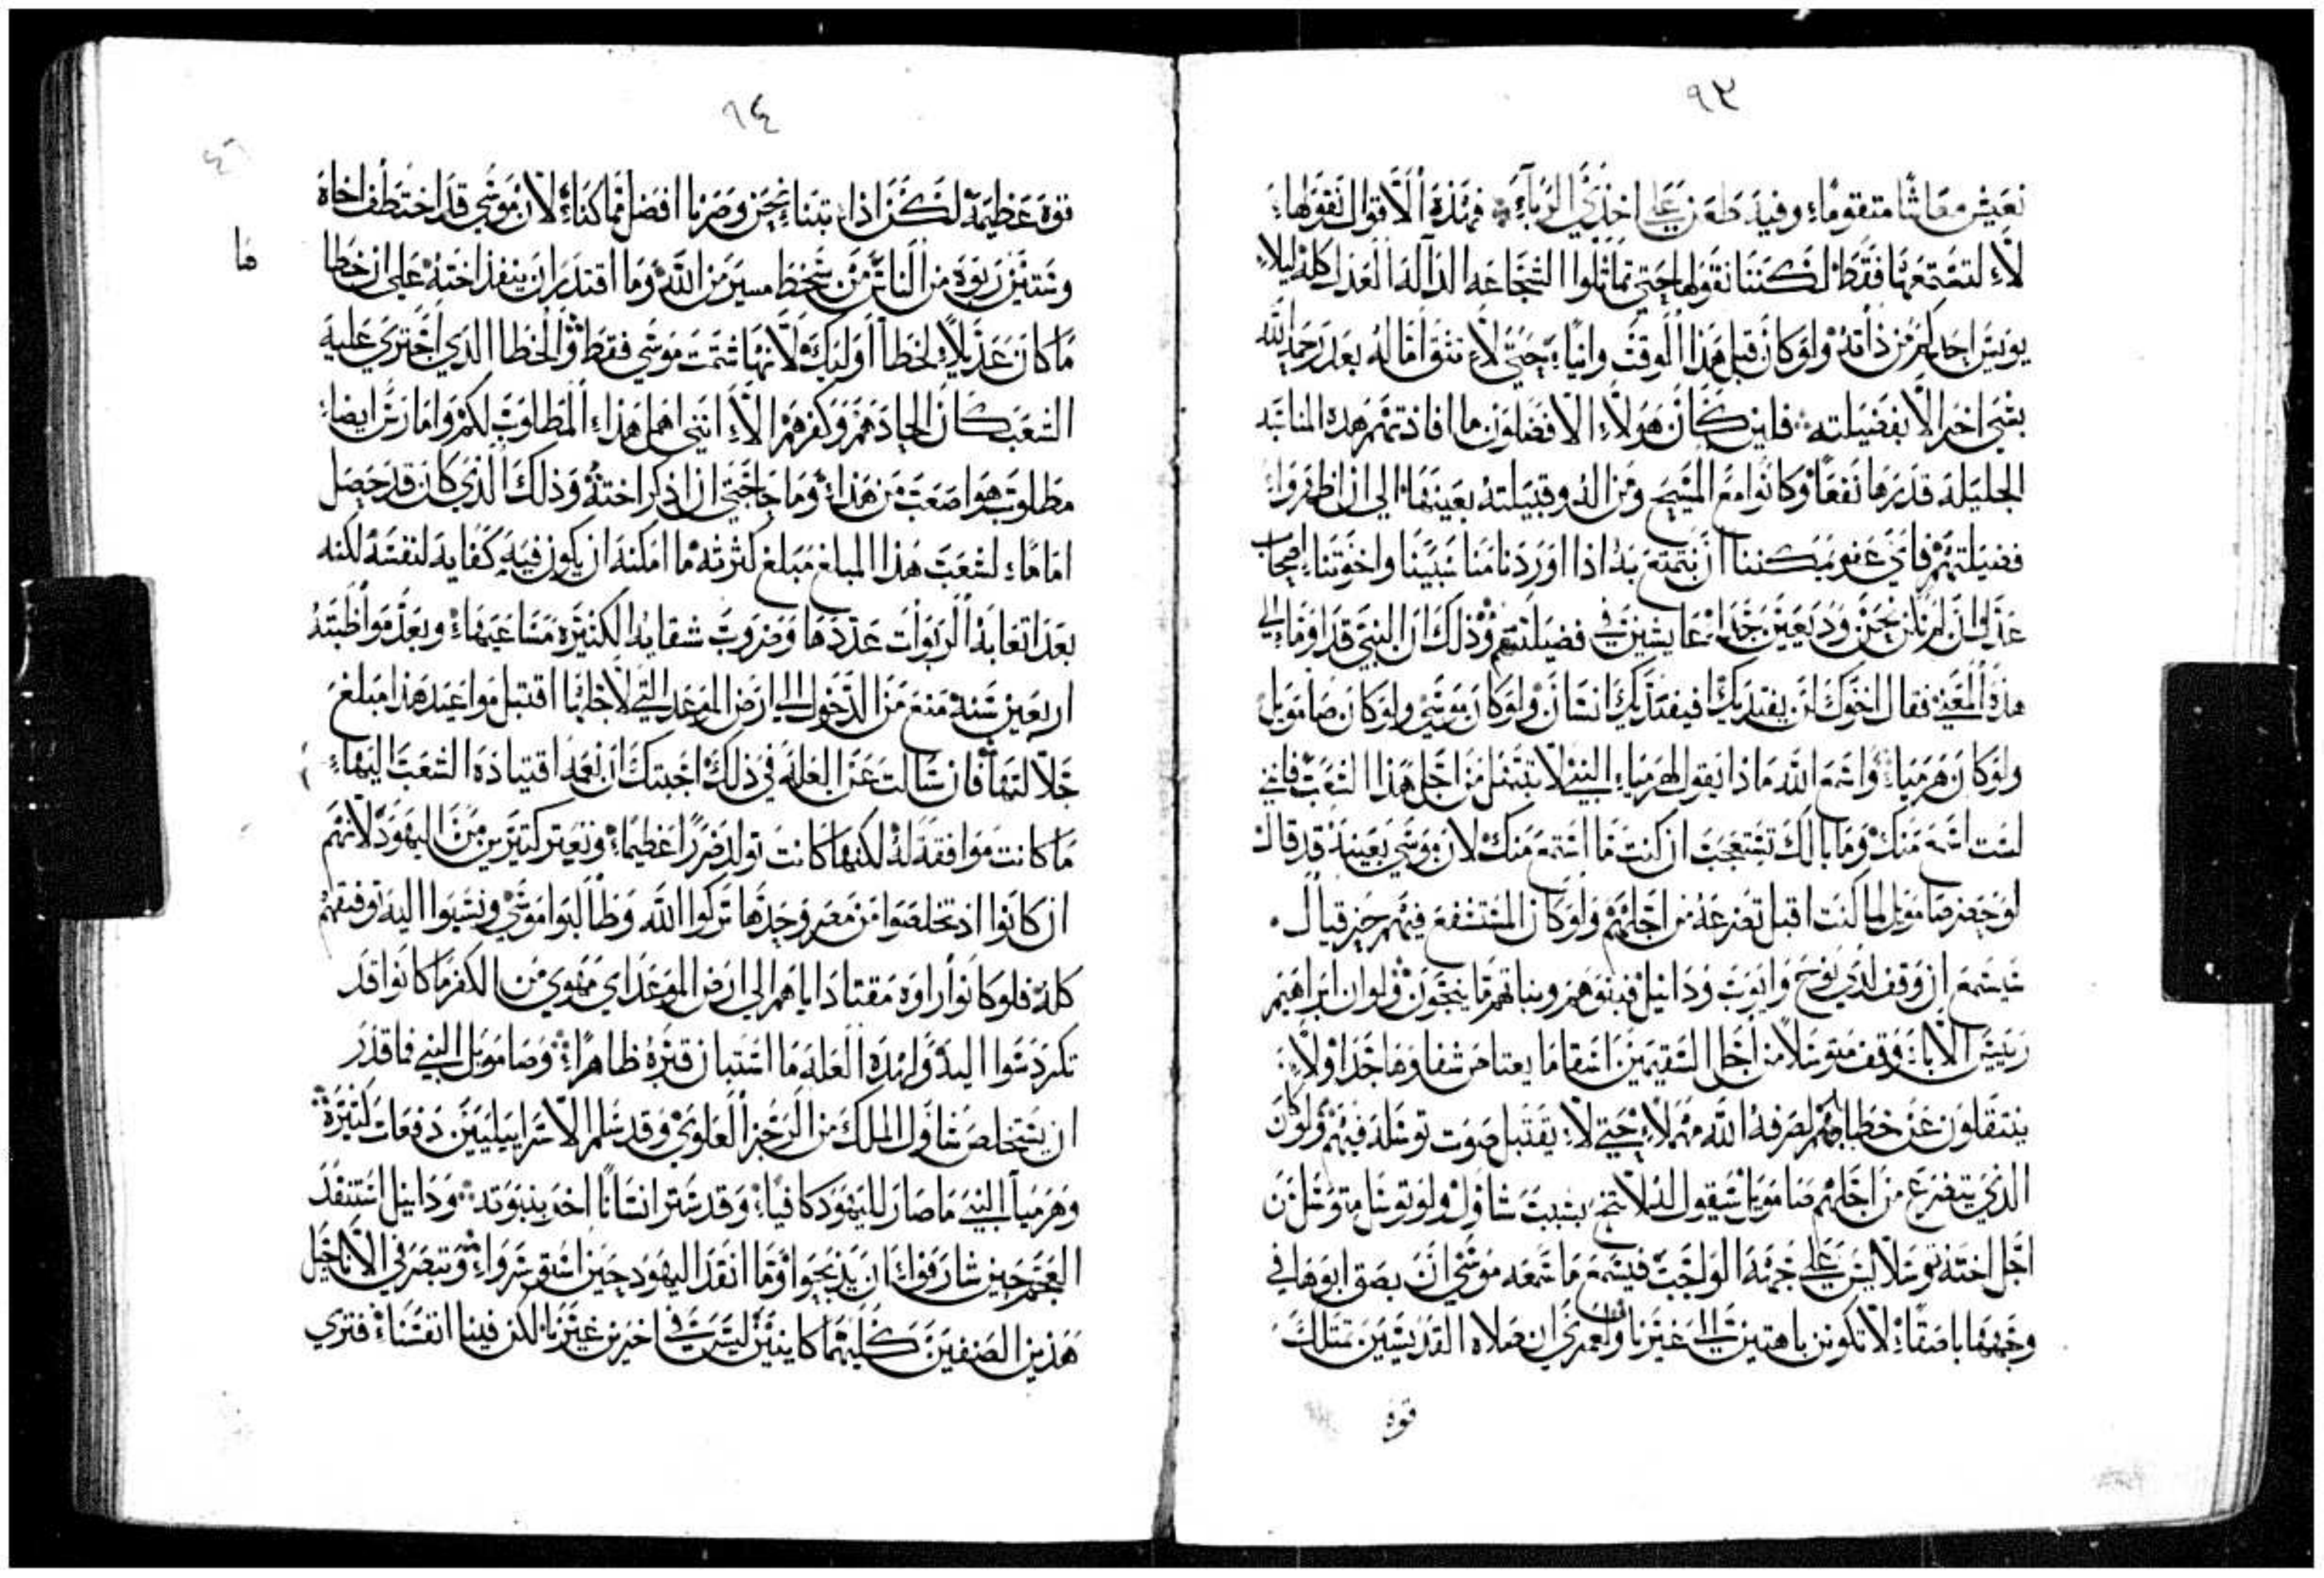 ٩٣
نعيش معاشا متقوماء وفيه طعن علي اخذي الرباء فهذه الاقوال نقولها
لاء لتستمعها فقط لكننا نقولها حتي تماثلوا الشجاعه
احدكم من ذاته ولو كان قبل هذا الوقت وانيا حتي لاء نثق اماله بعد رحمة الله
بشي اخر الا بفضيلته فلين كان هولاء الافضلون ما افادتهم هذه المناسبه
الجليله قدرها نفعا وكانوا مع المسيح ومن اله وقبيلته بعينها الي ان اظهروا
فضيلتهم فاي عفو يمكننا ان نتمتع به اذا اوردنا مناسبينا واخوتنا اصحاب
عدل ان لم نكن نحن وديعين جدا عايشين في فضيلتهم وذلك ان النبي قد اوماء الي
هذه المعني فقال اخوك لن يفتديك افيفتديك انسان ولو كان موسي ولو كان صامويل
ولو كان هرمياء واسمع الله ماذا يقول لهرمياء النبي لا تبتهل من اجل هذا الشعب فاني
لست اسمع منك وما بالك تستعجب ان كنت ما استمع منك لان موسي بعينه قد قال
لو حضر صامويل لما كنت اقبل تضرعه من اجلهم ولو كان المستشفع فيهم حزقيال
سيسمع ان وقف لدي نوح وايوب ودانيل فبنوهم وبناتهم ما ينجون ولو ان ابراهيم
رييس الاباء وقف متوسلا من اجل السقيمين اسقاما يعتاص شفاوها جدا ولاء
ينتقلون عن خطاياهم لصرفه الله مهملاء حتي لاء يقتبل صوت توسله فيهم ولو كان
الذي يتضرع من اجلهم صامويل سيقول له لا تنح بسبب شاول ولو توسل متوسل من
اجل اخته توسلا ليس علي جهته الواجبه فيسمع ما سمعه موسي ان بصق ابوها في
وجهها باصقاء لا تكونن باهتين الي غيرنا ولعمري ان صلاه القديسين تمتلك
قوة
٩٤
قوة عظيمة لكن اذا تبنا نحن وصرنا افضل مما كناء لان موسي قد اختطف اخاه
وستين ربوه من الناس من سخط مسير من الله وما اقتدر ان ينقذ اخته علي ان خطا
ها
ما كان عديلاء لخطا اوليك لانها شتمت موسي فقط والخطا الذي اجتري عليه
الشعب كان الحادهم وكفرهم الاء انني اهمل هذاء المطلوب لكم وامارس ايضاء
مطلوب هو اصعب من هذاء وما حاجتي ان اذكر اخته وذلك الذي كان قد حصل
اماماء لشعب هذا المبلغ مبلغ كثرته ما امكنه ان يكون فيه كفايه لنفسه لكنه
بعد اتعابه الربوات عددها وضروب شقايه الكثيره مساعيهاء وبعد مواظبته
اربعين سنه منع من الدخول الي ارض الموعد التي لاجلها اقتبل مواعيد هذا مبلغ
جلالتها فان سالت عن العله في ذلك اجبتك ان نعمه اقتياده الشعب اليهاء
ما كانت موافقة له لكنها كانت تولد ضررا عظيماء وتعثر كثيرين من اليهود لانهم
ان كانوا اذ تخلصوا من مصر وحدها تركوا الله وطالبوا موسي ونسبوا اليه توفيقهم
كله فلو كانوا راوه مقتادا اياهم الي ارض الموعد اي مهوي من الكفر ما كانوا قد
تكردسوا اليه ولهذه العله ما استبان قبره ظاهراء وصامويل النبي فما قدر
ان يستخلص شاول الملك من الرجز العلوي وقد سلم الاسراييليين دفعات كثيرة
وهرمياء النبي ما صار لليهود كافياء وقد ستر انسانا اخر بنبوته ودانيل استنقذ
العجم حين شارفواء ان يذبحوا وما انقذ اليهود حين استوسرواء وتبصر في الاناجيل
هذين الصنفين كليهما كاينين ليست في اخرين غيرنا لكن فينا انفسناء فتري